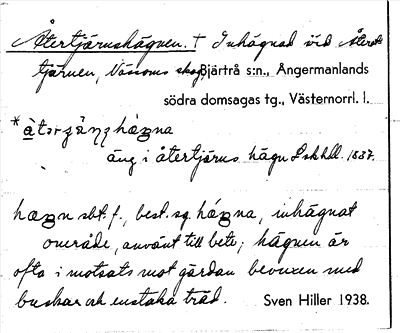 Återtjärnshägnen. † Inhägnad vid Återtjärnen, Nässoms skog Bjärtrå s:n., Ångermanlands
södra domsagas tg., Västernorrl. l.
äng i återtjärns hägn Lskhdl. 1837.
hægn sbt. f., best. sg. hǽgna, inhägnat
område, använt till bete; hägnen är
ofta i motsats mot gärdan bevuxen med
buskar och enstaka träd. Sven Hiller 1938.